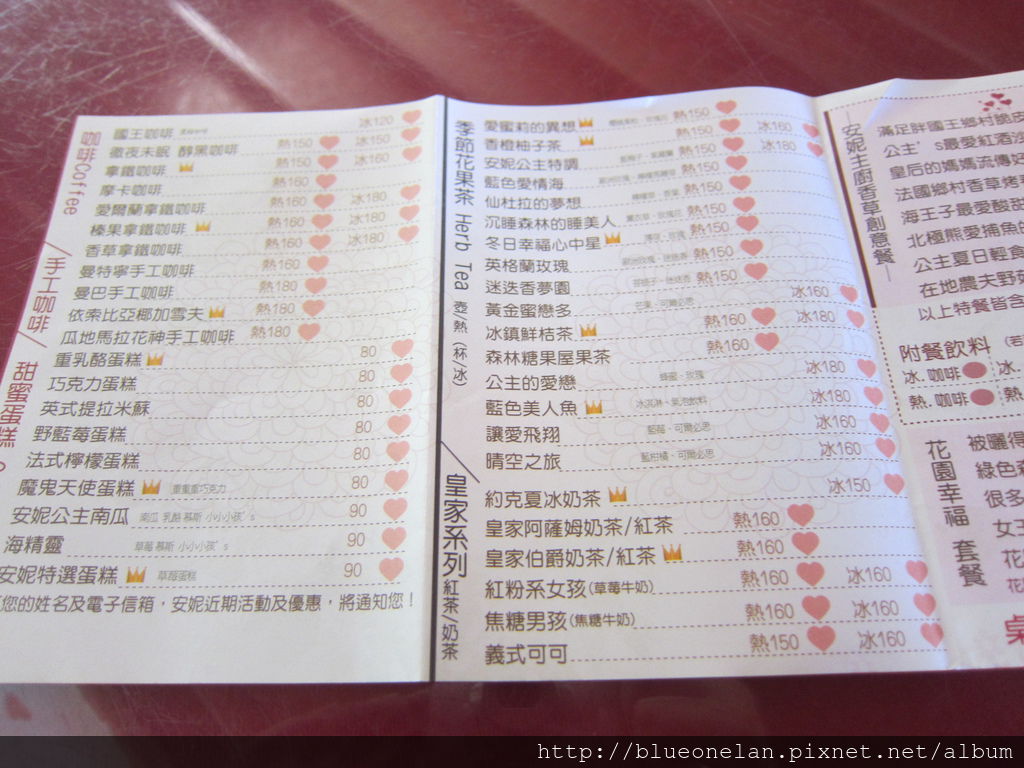 咖啡Coffee
國王咖啡 冰120
徹夜未眠 醇黑咖啡 熱150 冰150
拿鐵咖啡 熱150 冰160
摩卡咖啡 熱160
愛爾蘭拿鐵咖啡 熱160 冰180
榛果拿鐵咖啡 熱160 冰180
香草拿鐵咖啡 熱160 冰180
手工咖啡
曼特寧手工咖啡 熱160
曼巴手工咖啡 熱180
依索比亞椰加雪夫 熱180
瓜地馬拉花神手工咖啡 熱180
甜蜜蛋糕
重乳酪蛋糕 80
巧克力蛋糕 80
英式提拉米蘇 80
野藍莓蛋糕 80
法式檸檬蛋糕 80
魔鬼天使蛋糕 重重重巧克力 80
安妮公主南瓜 南瓜 乳酪 慕斯 小小小孩's 90
海精靈 草莓 慕斯 小小小孩's 90
安妮特選蛋糕 草莓蛋糕 90
您的姓名及電子信箱，安妮近期活動及優惠，將通知您！
季節花果茶 Herb Tea 壺/熱 (杯/冰)
愛蜜莉的異想 熱150
香橙柚子茶 熱150 冰160
安妮公主特調 熱150 冰180
藍色愛情海 熱150
仙杜拉的夢想 熱150
沉睡森林的睡美人 熱150
冬日幸福心中星 熱150
英格蘭玫瑰 熱150
迷迭香夢園 熱150
黃金蜜戀多 芒果、可爾必思 冰160
冰鎮鮮桔茶 熱160 冰180
森林糖果屋果茶 熱160
公主的愛戀 蜂蜜、玫瑰 冰180
藍色美人魚 冰淇淋、氣泡飲料 冰180
讓愛飛翔 藍莓、可爾必思 冰160
晴空之旅 藍柑橘、可爾必思 冰160
皇家系列 紅茶/奶茶
約克夏冰奶茶 冰150
皇家阿薩姆奶茶/紅茶 熱160
皇家伯爵奶茶/紅茶 熱160
紅粉系女孩(草莓牛奶) 熱160 冰160
焦糖男孩(焦糖牛奶) 熱160 冰160
義式可可 熱150 冰160
安妮主廚香草創意餐
滿足胖國王鄉村脆皮
公主's最愛紅酒沙
皇后的媽媽流傳好
法國鄉村香草烤
海王子最愛酸甜
北極熊愛捕魚的
公主夏日輕食
在地農夫野菇
以上特餐皆含
附餐飲料 (若
冰.咖啡 冰.
熱.咖啡 熱
花園幸福 套餐
被曬得
綠色森
很多
女王
花
花
桌
http://blueonelan.pixnet.net/album